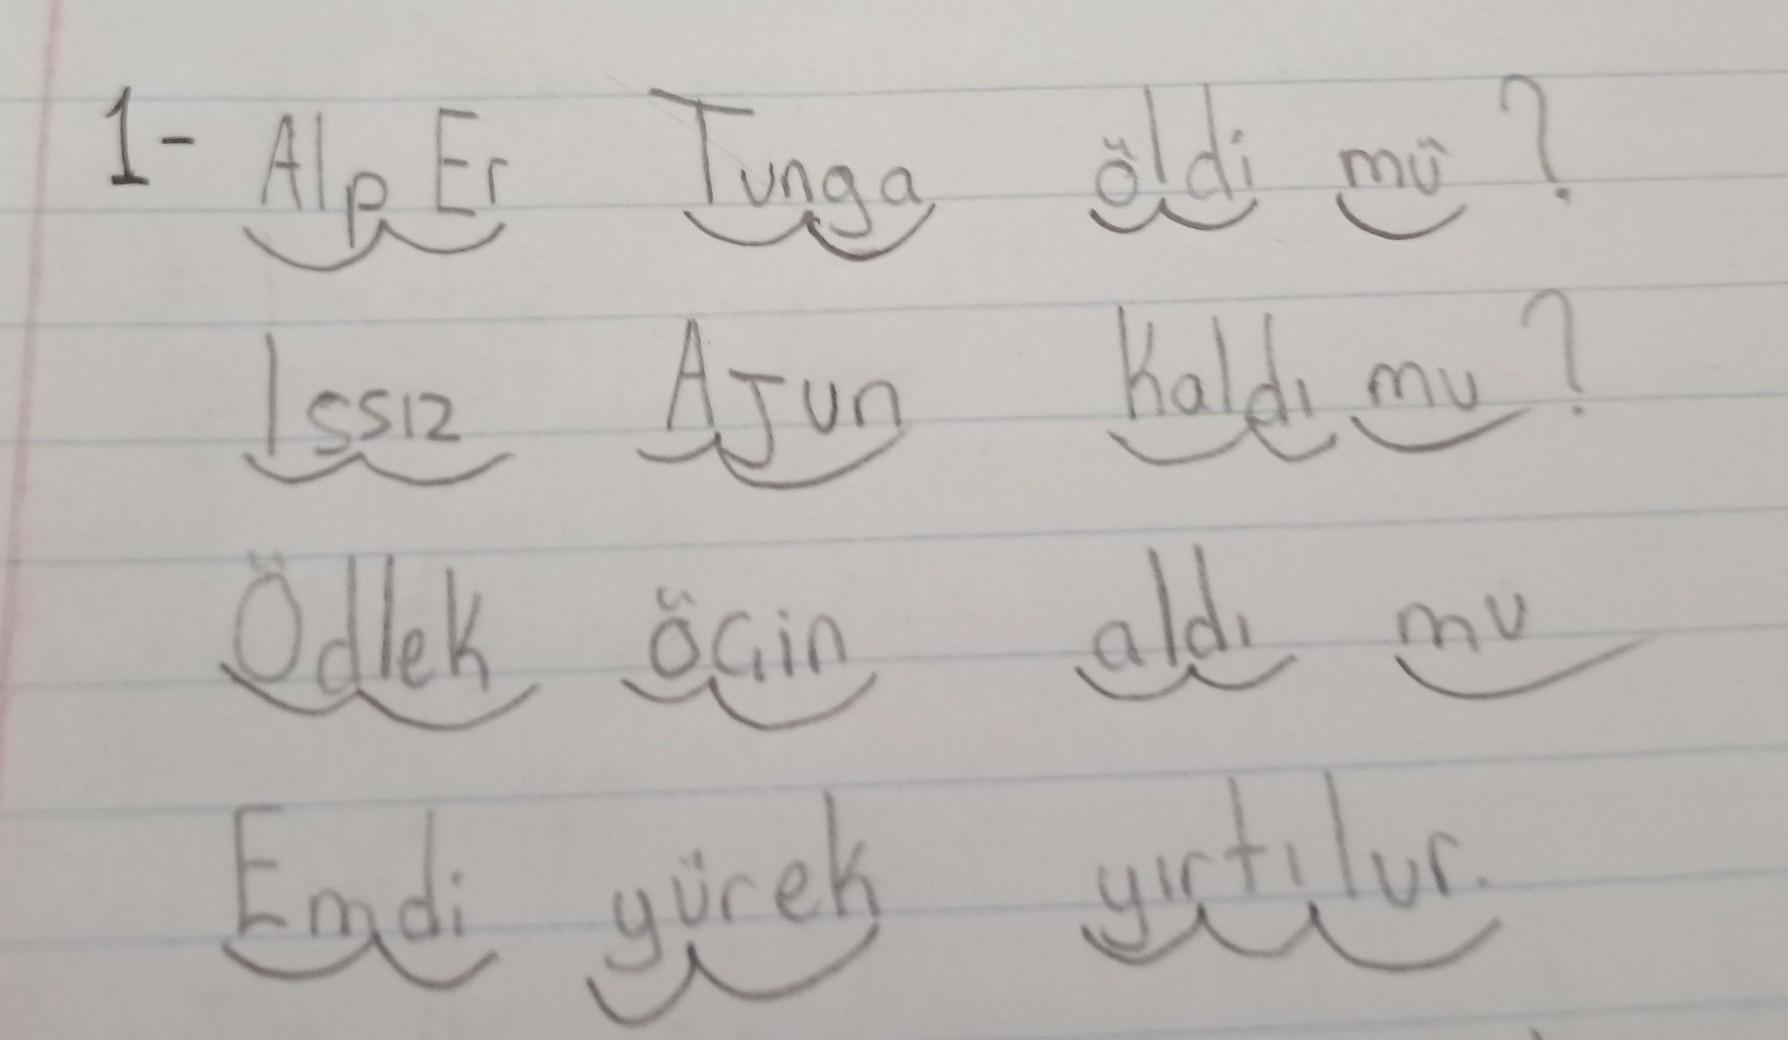 1- Alp Er Tunga öldi mü ?
Issız Ajun Kaldı mu ?
Ödlek öcin aldı mu
Emdi yürek yırtılur.